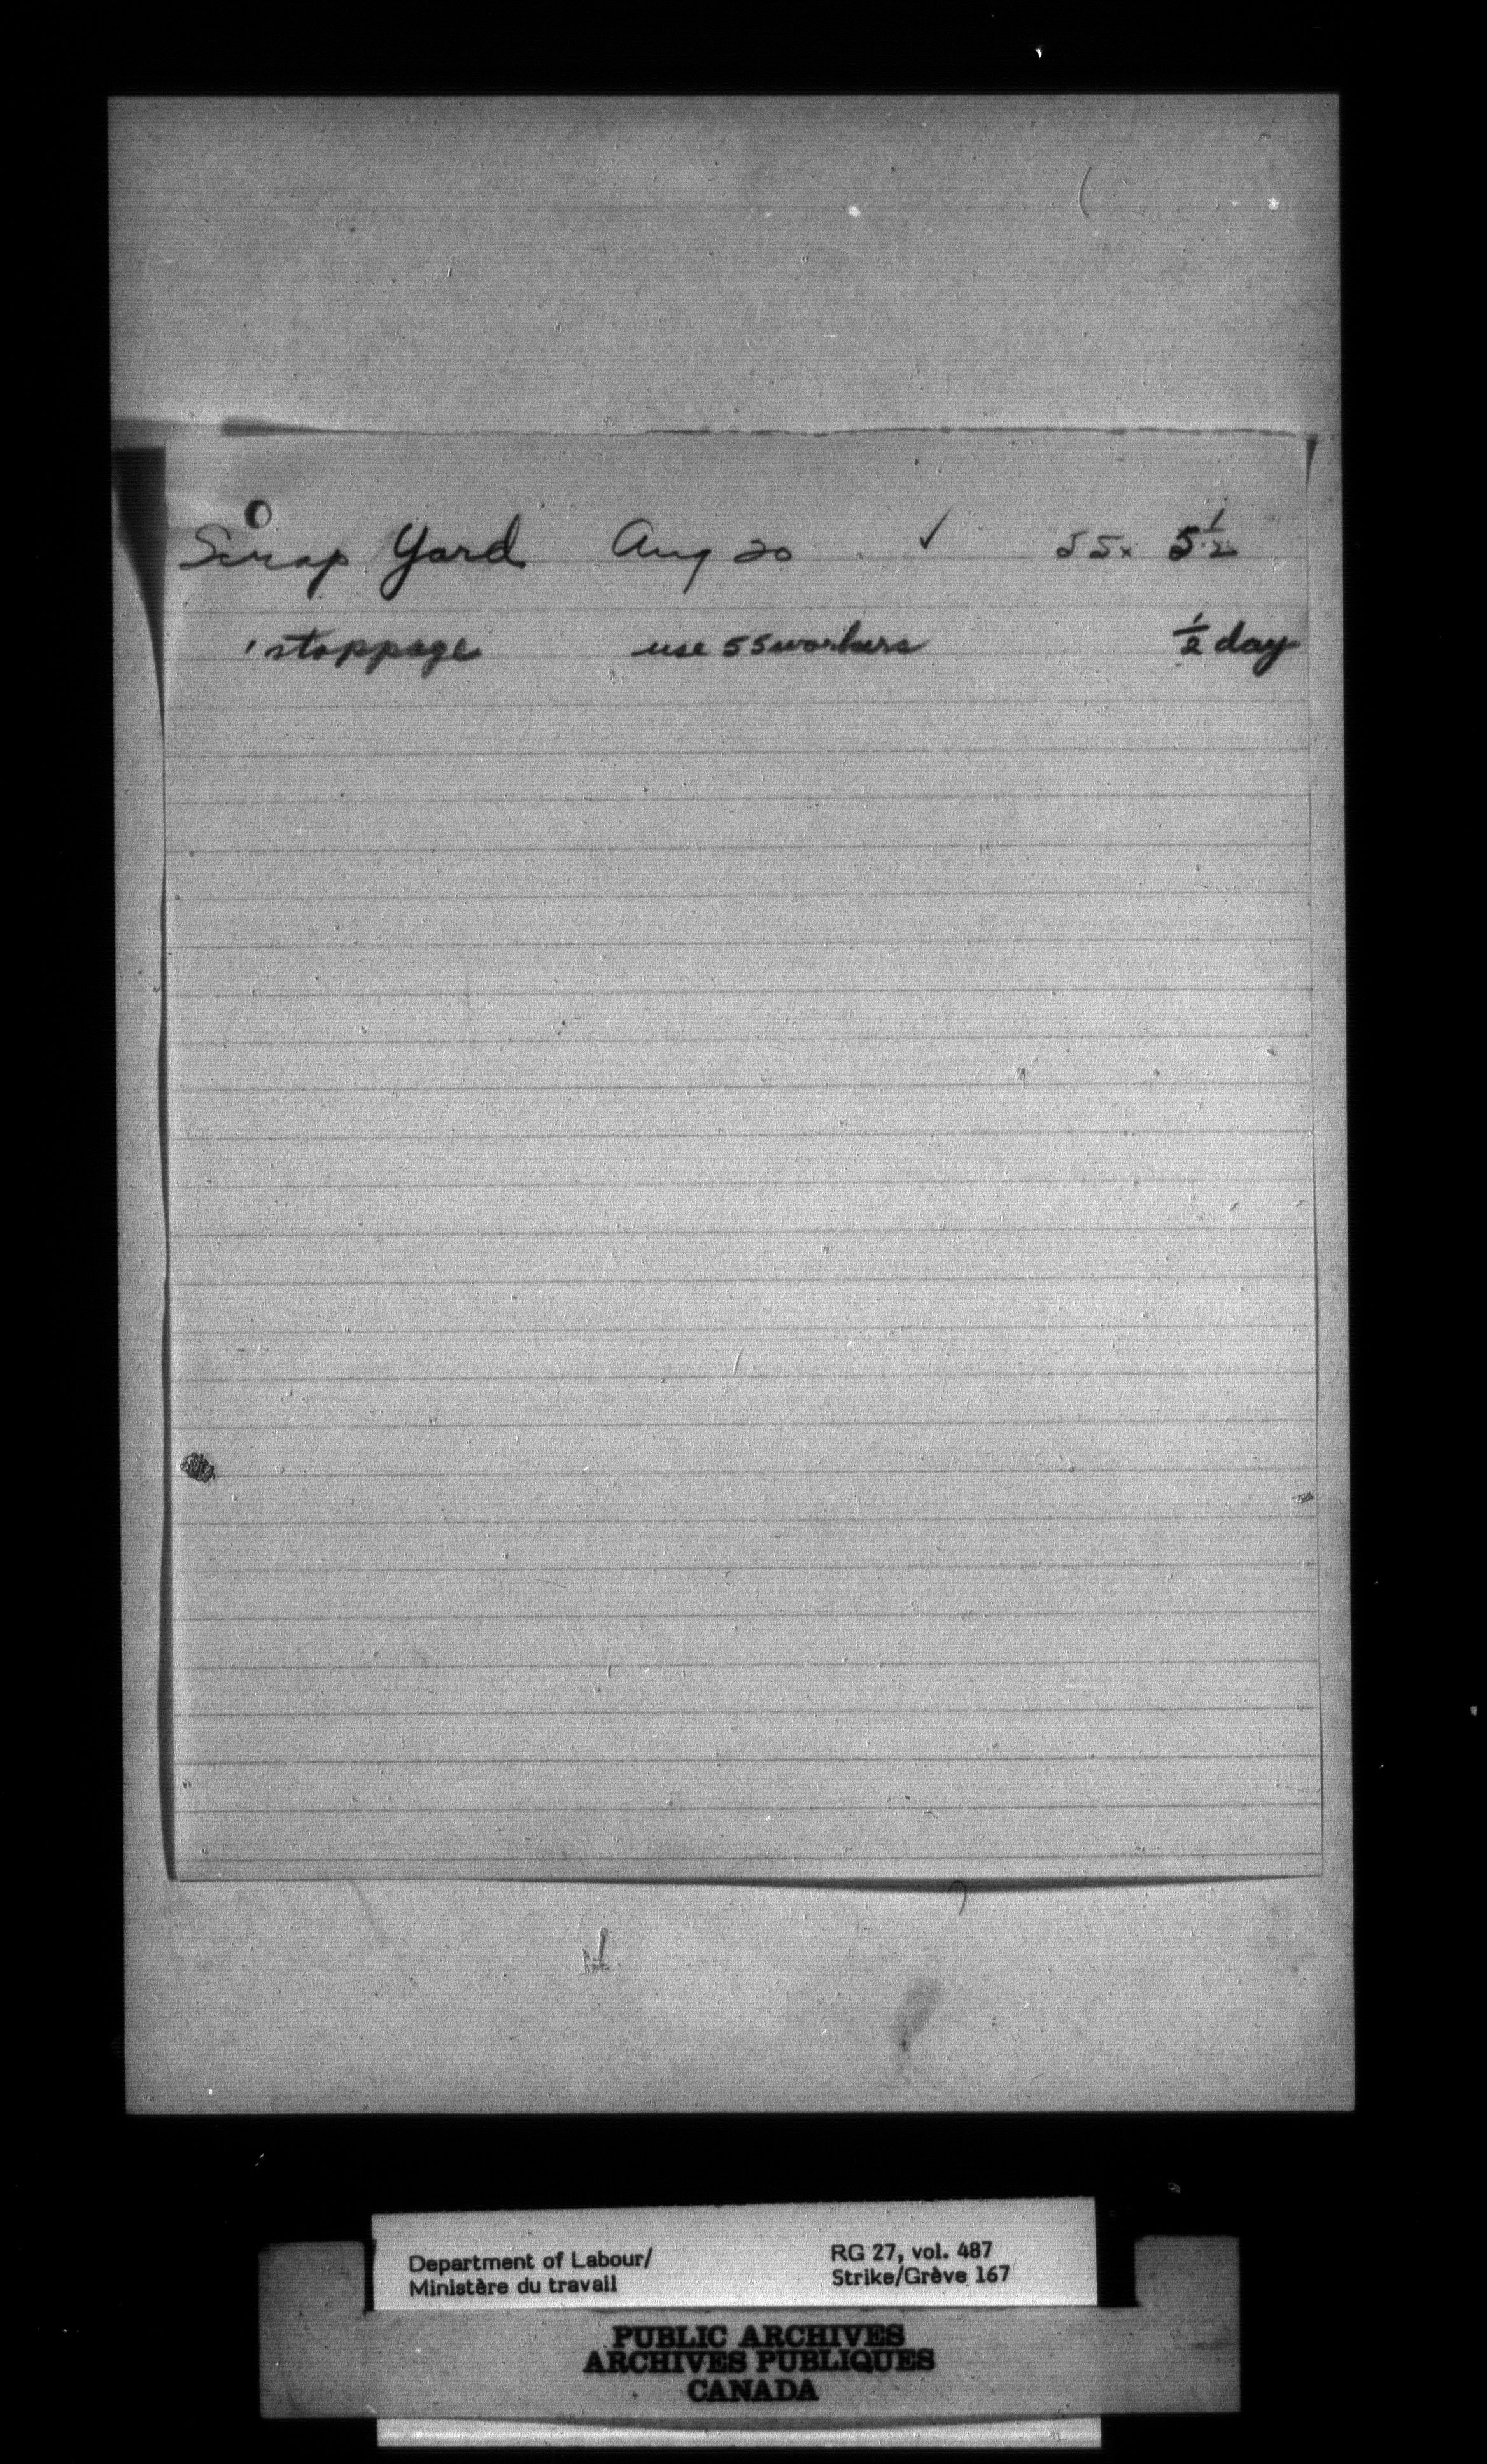 Scrap Yard Aug 20 ✓ 55 x 5 1/2
1 stoppage use 55 workers 1/2 day
Department of Labour/
Ministère du travail
RG 27, vol. 487
Strike/Grève 167
PUBLIC ARCHIVES
ARCHIVES PUBLIQUES
CANADA